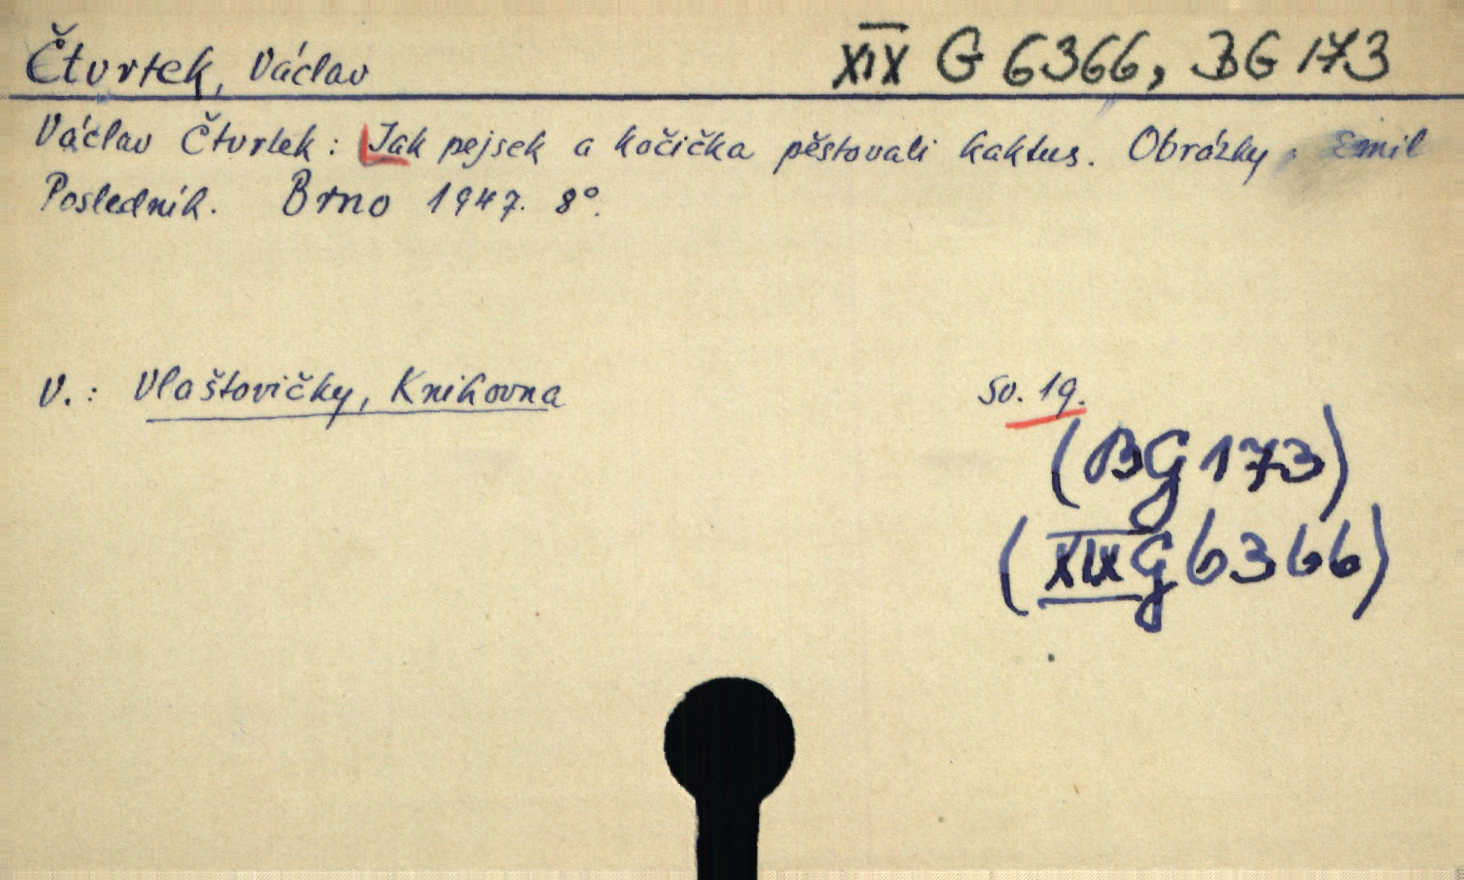 Čtvrtek, Václav XIX G 6366, BG 173
Václav Čtvrtek: Jak pejsek a kočička pěstovali kaktus. Obrázky Emil
Posledník. Brno 1947. 8°.
V.: Vlaštovičky, Knihovna sv. 19.
(BG 173)
(XIX G 6366)